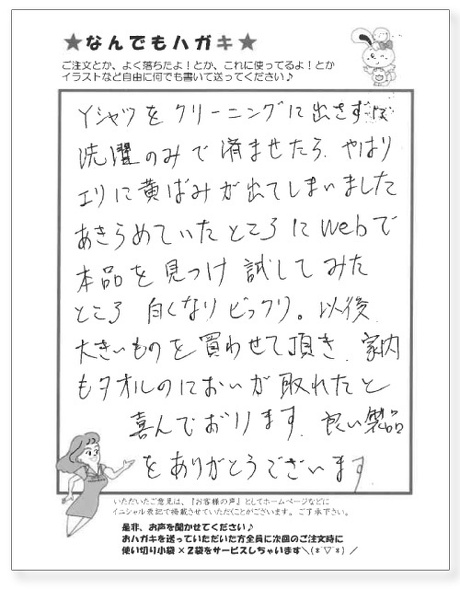 ★なんでもハガキ★
ご注文とか、よく落ちたよ！とか、これに使ってるよ！とか
イラストなど自由に何でも書いて送ってください♪
Yシャツをクリーニングに出さず
洗濯のみで済ませたら、やはり
エリに黄ばみが出てしまいました
あきらめていたところにwebで
本品を見つけ試してみた
ところ白くなりビックリ。以後、
大きいものを買わせて頂き、家内
もタオルのにおいが取れたと
喜んでおります。良い製品
をありがとうございます
いただいたご意見は、『お客様の声』としてホームページなどに
イニシャル表記で掲載させていただくことがございます。ご了承下さい。
是非、お声を聞かせてください♪
おハガキを送っていただいた方全員に次回のご注文時に
使い切り小袋×2袋をサービスしちゃいます＼(*´▽`*)／